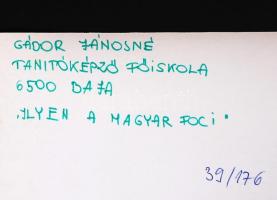 GÁDOR JÁNOSNÉ
TANITÓKÉPZŐ FŐISKOLA
6500 BAJA
„ILYEN A MAGYAR FOCI"
39/176